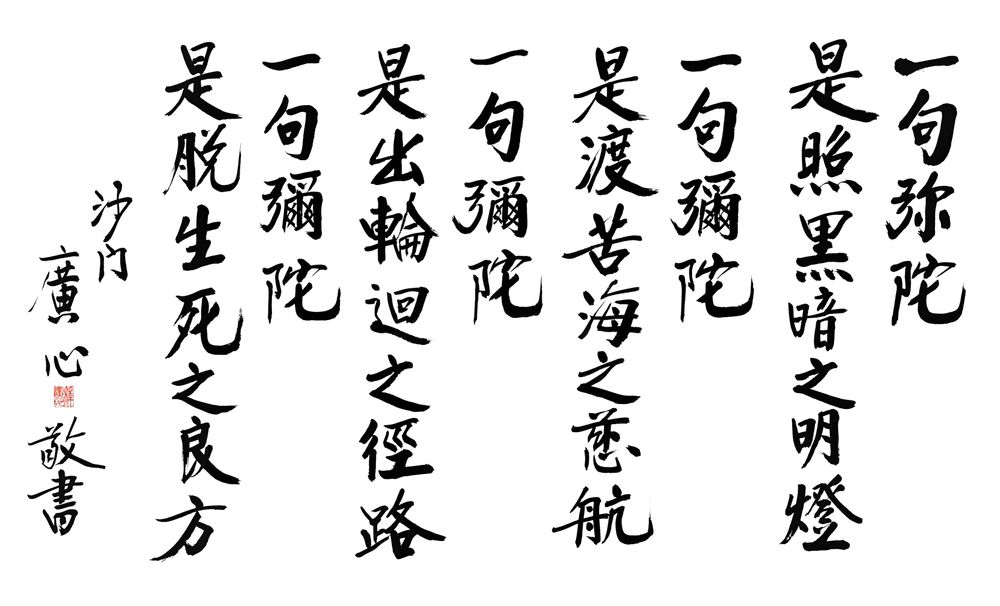 一句弥陀
是照黑暗之明燈
一句彌陀
是渡苦海之慈航
一句彌陀
是出輪迴之徑路
一句彌陀
是脱生死之良方
沙门
廣心
敬書